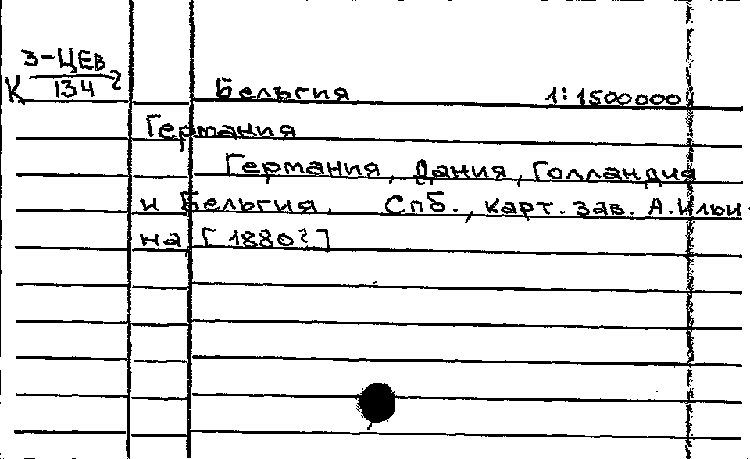 З-ЦЕВ
К 134 2
Бельгия 1:1500000
Германия
Германия, Дания, Голландия
и Бельгия. Спб., карт. зав. А.Ильи-
на [1880?]